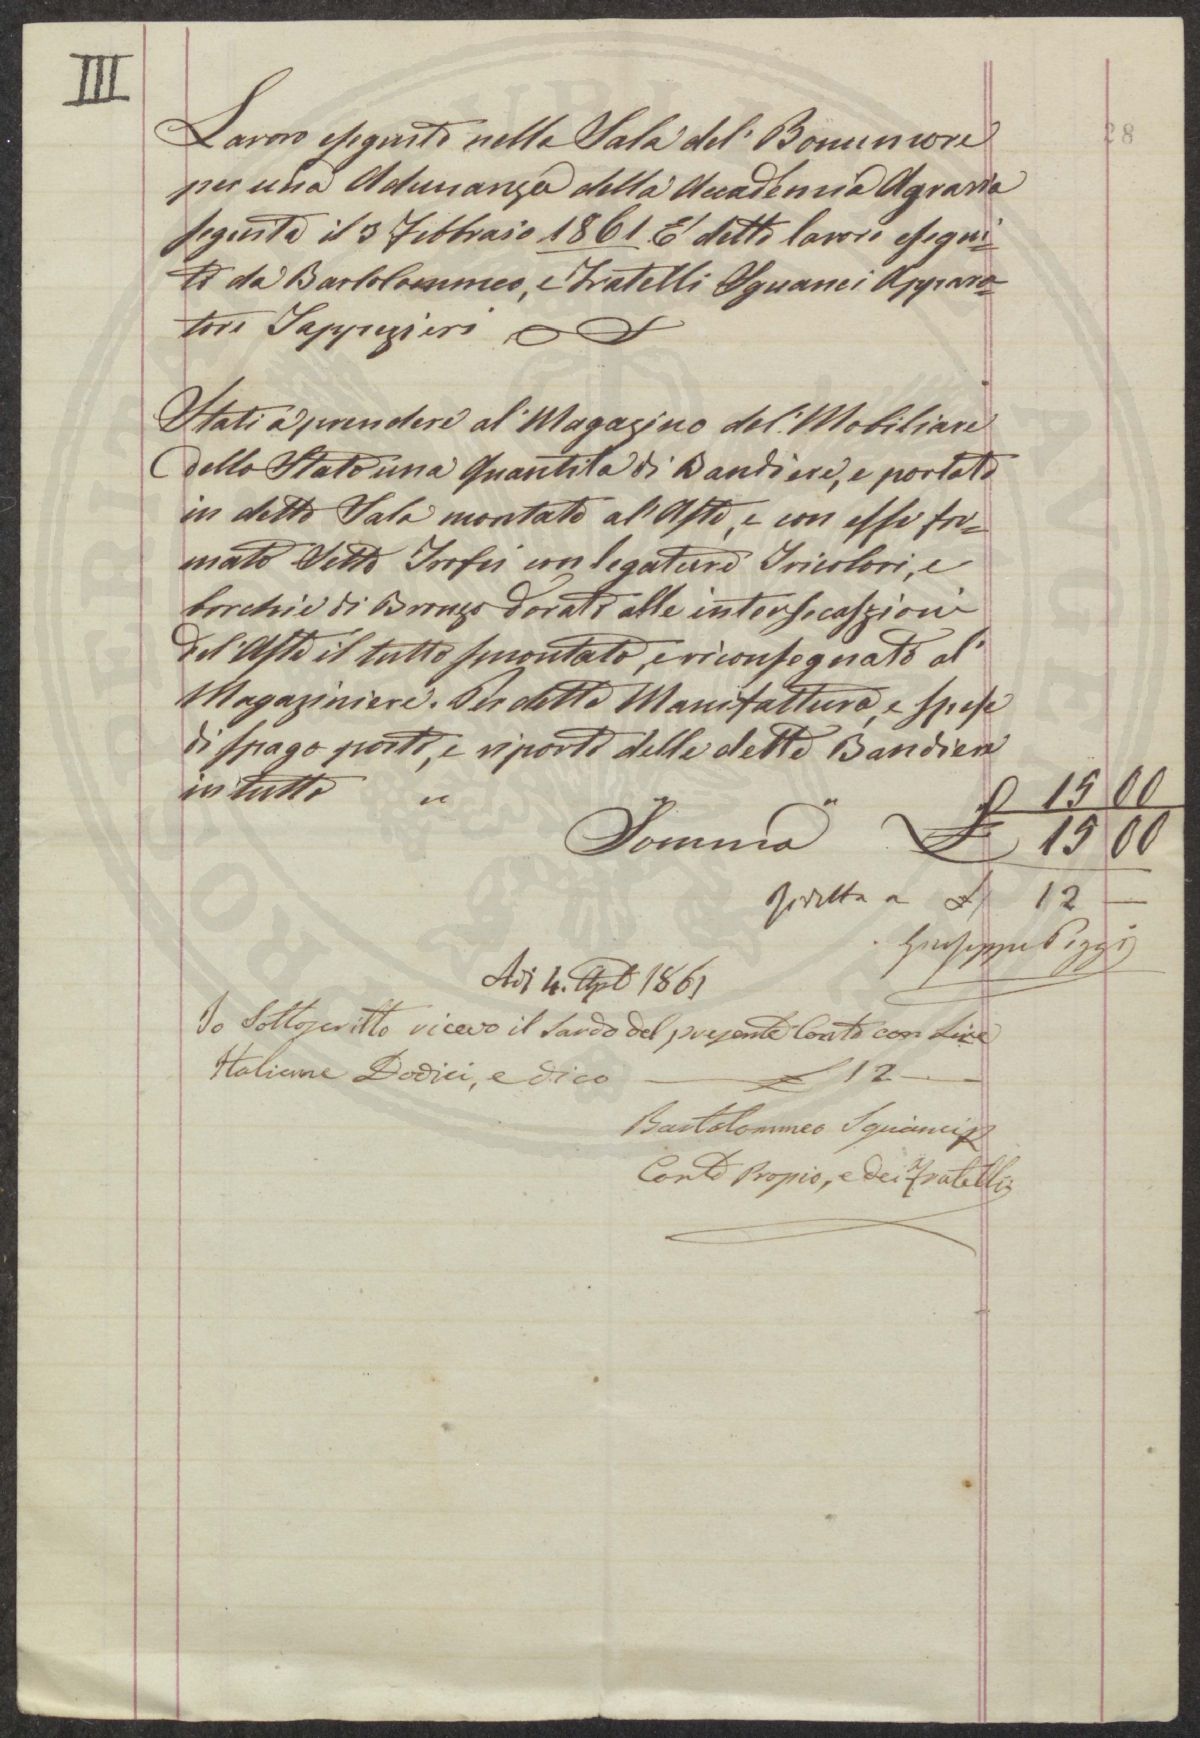 III
28
Lavoro eseguito nella Sala del' Bonumore
per una Adunanza della Accademia Agraria
seguita il 3 Febbraio 1861. E' detto lavoro esegui=
to da Bartolommeo, e Fratelli Sguanci Appara=
tori Tappezieri
Stati a prendere al' Magazino del' Mobiliare
dello Stato una Quantita di Bandiere, e portate
in detta Sala montate al' Aste, e con esse for=
mato Sette Trofei con legature Tricolori, e
borchie di Bronzo dorato alle intersecaszioni
del' Aste il tutto smontato, e riconsegnato al'
Magaziniere. Per detta Manifattura, e spese
di spago porto, e riporto delle dette Bandiere
in tutto " £ 15 00
"Somma" £ 15 00
ridotta a £ 12 —
Giuseppe Poggi
Adi 4. Aple 1861
Io Sottoscritto ricevo il Sardo del presente Conto con Lire
Italiane Dodici, e dico — £ 12 —
Bartolommeo Sguanci P
Conto Propio, e dei Fratelli